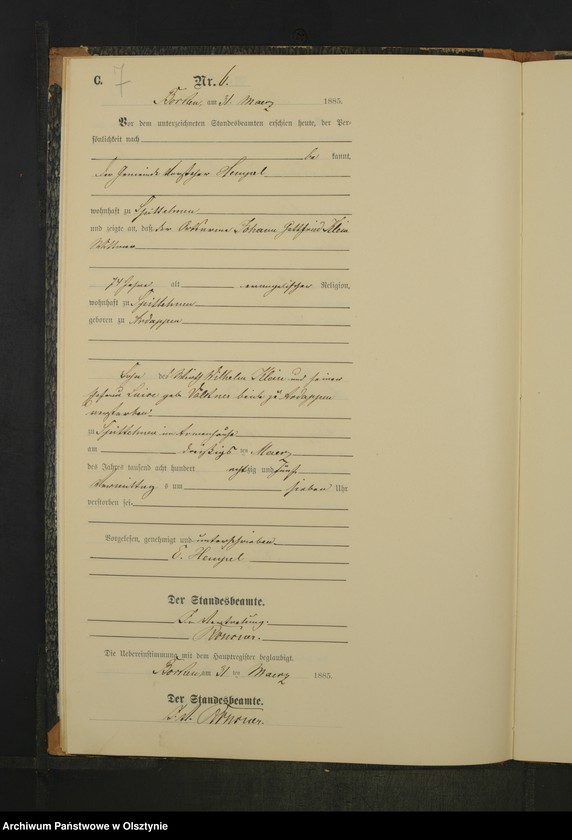 C. 7 Nr. 6.
am 31 Maerz 1885.
Vor dem unterzeichneten Standesbeamten erschien heute, der Per-
sönlichkeit nach
be kannt,
der Gemeinde Vorsteher Hempel
wohnhaft zu Spittehnen
und zeigte an, daß der Ortsarme Johann Gottfried Klein
74 Jahre alt evangelischer Religion,
wohnhaft zu Spittehnen
geboren zu Ardappen
Sohn des Wirth Wilhelm Klein und seiner
Ehefrau Luise geb. beide zu Ardappen
verstorben
zu Spittehnen im Armenhause
am dreißigs ten Maerz
des Jahres tausend acht hundert achtzig und fünf
Vormittag s um sieben Uhr
verstorben sei.
Vorgelesen, genehmigt und unterschrieben
Hempel
Der Standesbeamte.
In Vertretung.
Die Uebereinstimmung mit dem Hauptregister beglaubigt.
am 31 ten Maerz 1885.
Der Standesbeamte.
Archiwum Państwowe w Olsztynie